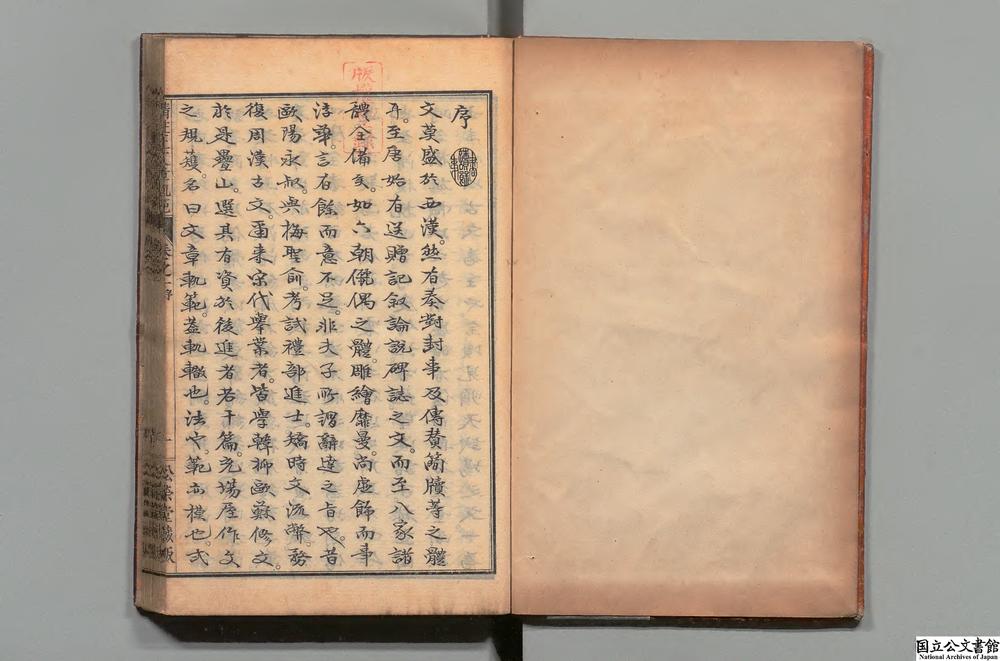 序
文莫盛於西漢。然有奏對封事及傳賛簡牘等之體
耳。至唐始有送贈記叙論説碑誌之文。而至八家諸
體全備矣。如六朝儷偶之體。雕繪靡曼。尚虚飾而事
浮華。言有餘而意不足。非夫子所謂辭達之旨也。昔
歐陽永叔。與梅聖俞。考試禮部進士。矯時文流弊。務
復周漢古文。爾来宋代擧業者。皆學韓柳歐蘇修文。
於是疊山。選具有資於後進者若干篇。充塲屋作文
之規矱。名曰文章軌範。葢軌轍也。法也。範亦模也。式
卷之一序
松榮堂藏版
国立公文書館
National Archives of Japan